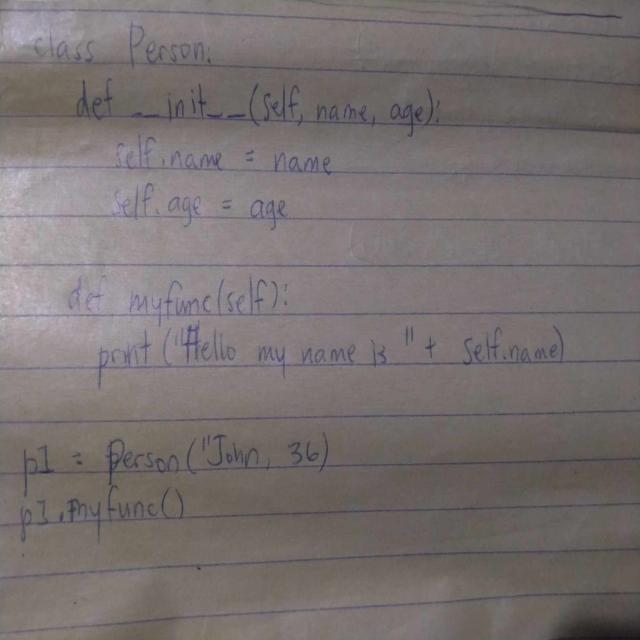 class Person:
def __init__(self, name, age):
self.name = name
self.age = age
def myfunc(self):
print("Hello my name is " + self.name)
p1 = person("John, 36)
p1.myfunc()